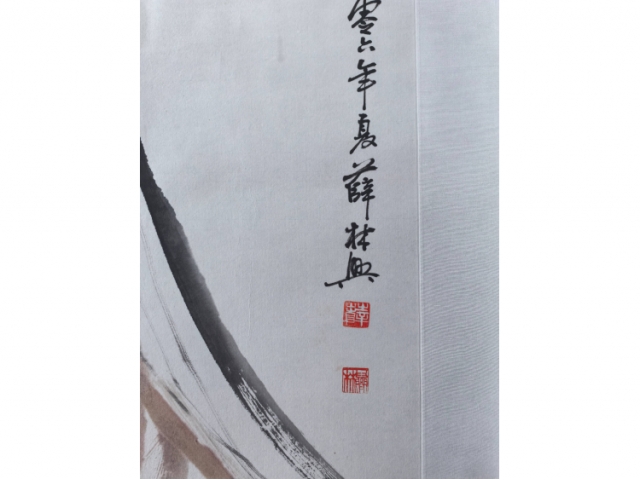 零六年夏薛林興